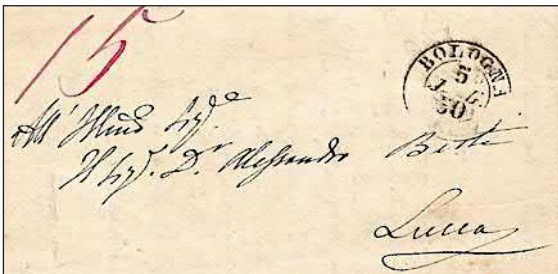 15
BOLOGNA
5
50
All' Illmo Sigre
Il Sigr. Dr Alessandro
Lucca